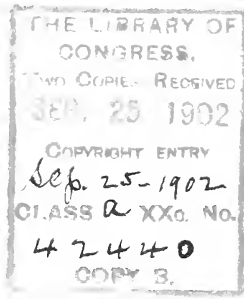 THE LIBRARY OF
CONGRESS,
TWO COPIES RECEIVED
SEP. 25 1902
COPYRIGHT ENTRY
Sep. 25-1902
CLASS a XXc. No.
42440
COPY B.